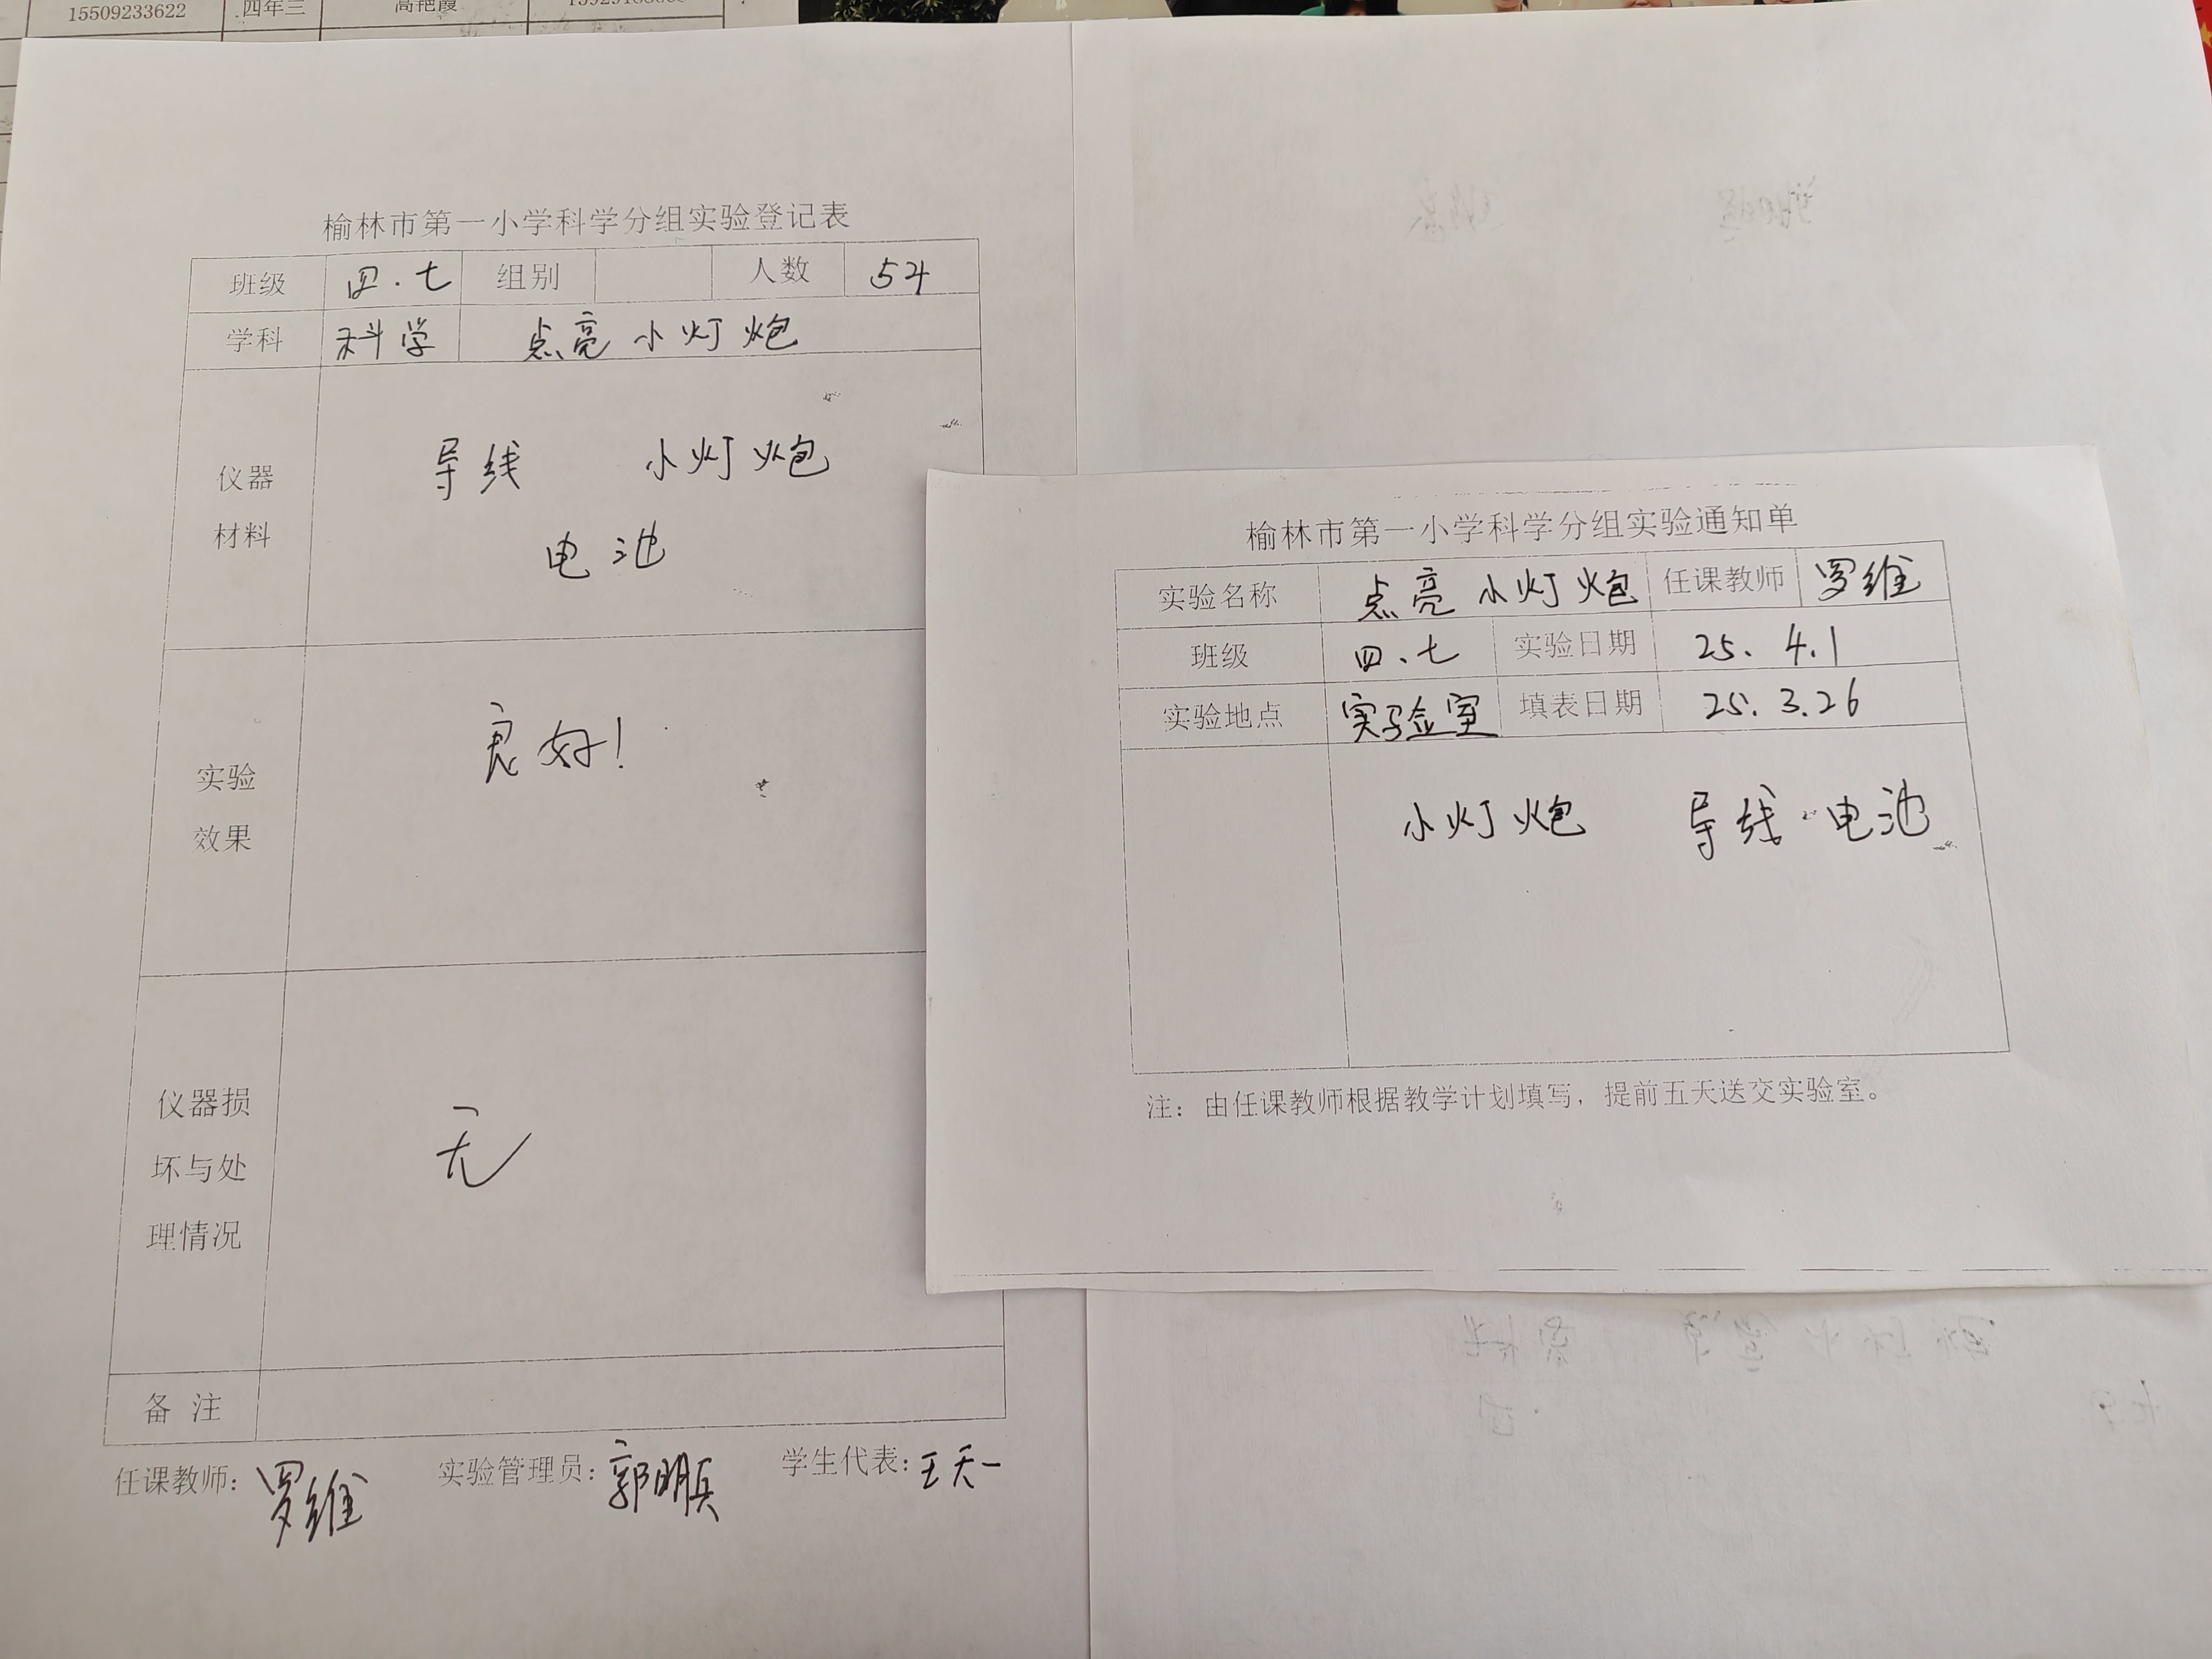 15509233622 四年三 高艳霞
榆林市第一小学科学分组实验登记表
班级 四.七 组别 人数 54
学科 科学 点亮小灯炮
仪器
材料
导线 小灯炮
电池
实验
效果
良好!
仪器损
坏与处
理情况
无
备 注
任课教师: 罗维 实验管理员: 郭明 学生代表: 王天一
榆林市第一小学科学分组实验通知单
实验名称 点亮小灯炮 任课教师 罗维
班级 四.七 实验日期 25. 4.1
实验地点 实验室 填表日期 25. 3.26
小灯炮 导线 电池
注: 由任课教师根据教学计划填写, 提前五天送交实验室。